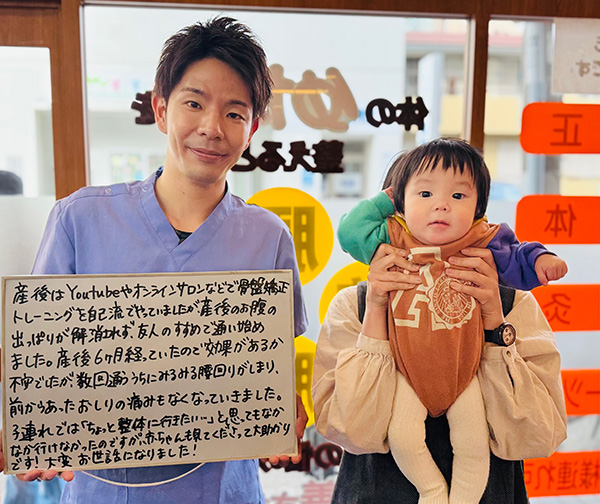 産後はYoutubeやオンラインサロンなどで骨盤矯正
トレーニングを自己流でやっていましたが産後のお腹の
出っぱりが解消れず、友人のすすめで通い始め
ました。産後6ヶ月経っていたので効果があるか
不安でたが、数回通ううちにみるみる腰回りがしまり、
前からあったおしりの痛みもなくなっていきました。
子連れでは「ちょっと整体に行きたい…」と思ってもなか
なか行けなかったのですが、赤ちゃんも見てくださって大助かり
です！大変お世話になりました！
体の
整えると
正
体
灸
です